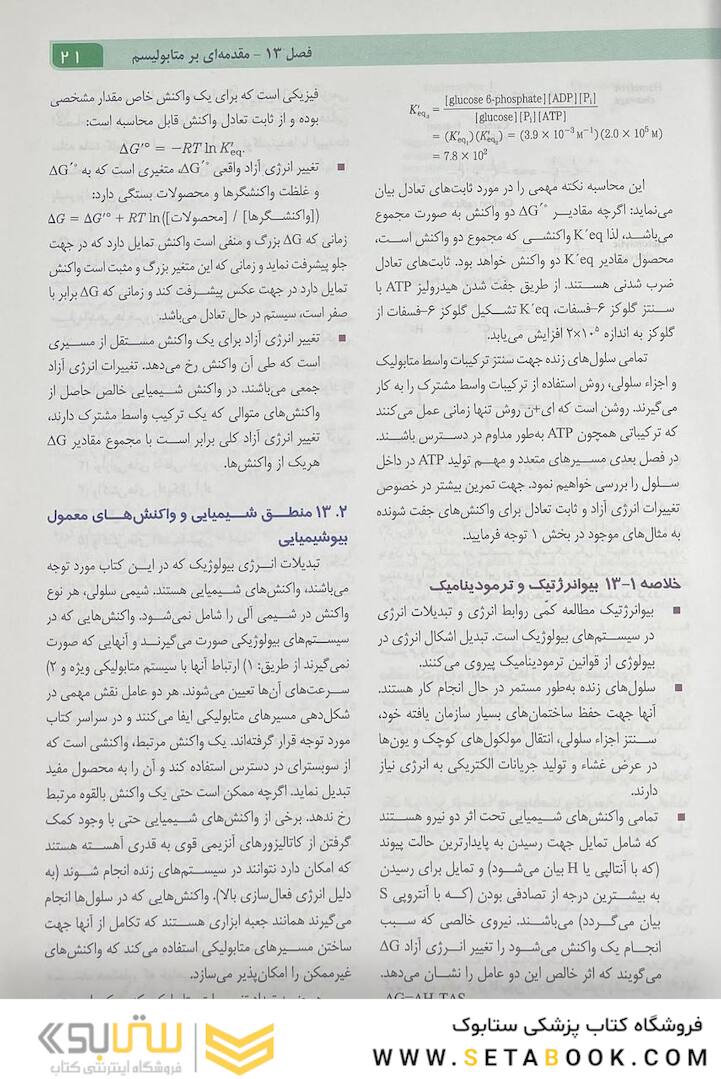 فصل ۱۳ – مقدمه‌ای بر متابولیسم
۲۱
K′eq₃ = [glucose 6-phosphate][ADP][Pi] / [glucose][Pi][ATP]
= (K′eq₁)(K′eq₂) = (3.9 × 10⁻³ M⁻¹)(2.0 × 10⁵ M)
= 7.8 × 10²
این محاسبه نکته مهمی را در مورد ثابت‌های تعادل بیان
می‌نماید: اگرچه مقادیر ΔG′° دو واکنش به صورت مجموع
می‌باشد، لذا K′eq واکنشی که مجموع دو واکنش است،
محصول مقادیر K′eq دو واکنش خواهد بود. ثابت‌های تعادل
ضرب شدنی هستند. از طریق جفت شدن هیدرولیز ATP با
سنتز گلوکز ۶-فسفات، K′eq تشکیل گلوکز ۶-فسفات از
گلوکز به اندازه ۲×۱۰⁵ افزایش می‌یابد.
تمامی سلول‌های زنده جهت سنتز ترکیبات واسط متابولیک
و اجزاء سلولی، روش استفاده از ترکیبات واسط مشترک را به کار
می‌گیرند. روشن است که ای+ن روش تنها زمانی عمل می‌کنند
که ترکیباتی همچون ATP به‌طور مداوم در دسترس باشند.
در فصل بعدی مسیرهای متعدد و مهم تولید ATP در داخل
سلول را بررسی خواهیم نمود. جهت تمرین بیشتر در خصوص
تغییرات انرژی آزاد و ثابت تعادل برای واکنش‌های جفت شونده
به مثال‌های موجود در بخش ۱ توجه فرمایید.
خلاصه ۱-۱۳ بیوانرژتیک و ترمودینامیک
■ بیوانرژتیک مطالعه کمّی روابط انرژی و تبدیلات انرژی
در سیستم‌های بیولوژیک است. تبدیل اشکال انرژی در
بیولوژی از قوانین ترمودینامیک پیروی می‌کنند.
■ سلول‌های زنده به‌طور مستمر در حال انجام کار هستند.
آنها جهت حفظ ساختمان‌های بسیار سازمان یافته خود،
سنتز اجزاء سلولی، انتقال مولکول‌های کوچک و یون‌ها
در عرض غشاء و تولید جریانات الکتریکی به انرژی نیاز
دارند.
■ تمامی واکنش‌های شیمیایی تحت اثر دو نیرو هستند
که شامل تمایل جهت رسیدن به پایدارترین حالت پیوند
(که با آنتالپی یا H بیان می‌شود) و تمایل برای رسیدن
به بیشترین درجه از تصادفی بودن (که با آنتروپی S
بیان می‌گردد) می‌باشند. نیروی خالصی که سبب
انجام یک واکنش می‌شود را تغییر انرژی آزاد ΔG
می‌گویند که اثر خالص این دو عامل را نشان می‌دهد.
ΔG=ΔH-TΔS
فیزیکی است که برای یک واکنش خاص مقدار مشخصی
بوده و از ثابت تعادل واکنش قابل محاسبه است:
ΔG′° = −RT ln K′eq.
■ تغییر انرژی آزاد واقعی ΔG′°، متغیری است که به ΔG′°
و غلظت واکنشگرها و محصولات بستگی دارد:
ΔG = ΔG′° + RT ln([محصولات] / [واکنشگرها])
زمانی که ΔG بزرگ و منفی است واکنش تمایل دارد که در جهت
جلو پیشرفت نماید و زمانی که این متغیر بزرگ و مثبت است واکنش
تمایل دارد در جهت عکس پیشرفت کند و زمانی که ΔG برابر با
صفر است، سیستم در حال تعادل می‌باشد.
■ تغییر انرژی آزاد برای یک واکنش مستقل از مسیری
است که طی آن واکنش رخ می‌دهد. تغییرات انرژی آزاد
جمعی می‌باشند. در واکنش شیمیایی خالص حاصل از
واکنش‌های متوالی که یک ترکیب واسط مشترک دارند،
تغییر انرژی آزاد کلی برابر است با مجموع مقادیر ΔG
هریک از واکنش‌ها.
۲. ۱۳ منطق شیمیایی و واکنش‌های معمول
بیوشیمیایی
تبدیلات انرژی بیولوژیک که در این کتاب مورد توجه
می‌باشند، واکنش‌های شیمیایی هستند. شیمی سلولی، هر نوع
واکنش در شیمی آلی را شامل نمی‌شود. واکنش‌هایی که در
سیستم‌های بیولوژیکی صورت می‌گیرند و آنهایی که صورت
نمی‌گیرند از طریق: ۱) ارتباط آنها با سیستم متابولیکی ویژه و ۲)
سرعت‌های آن‌ها تعیین می‌شوند. هر دو عامل نقش مهمی در
شکل‌دهی مسیرهای متابولیکی ایفا می‌کنند و در سراسر کتاب
مورد توجه قرار گرفته‌اند. یک واکنش مرتبط، واکنشی است که
از سوبسترای در دسترس استفاده کند و آن را به محصول مفید
تبدیل نماید. اگرچه ممکن است حتی یک واکنش بالقوه مرتبط
رخ ندهد. برخی از واکنش‌های شیمیایی حتی با وجود کمک
گرفتن از کاتالیزورهای آنزیمی قوی به قدری آهسته هستند
که امکان دارد نتوانند در سیستم‌های زنده انجام شوند (به
دلیل انرژی فعال‌سازی بالا). واکنش‌هایی که در سلول‌ها انجام
می‌گیرند همانند جعبه ابزاری هستند که تکامل از آنها جهت
ساختن مسیرهای متابولیکی استفاده می‌کند که واکنش‌های
غیرممکن را امکان‌پذیر می‌سازد.
فروشگاه کتاب پزشکی ستابوک
WWW.SETABOOK.COM
ستابوک
فروشگاه اینترنتی کتاب